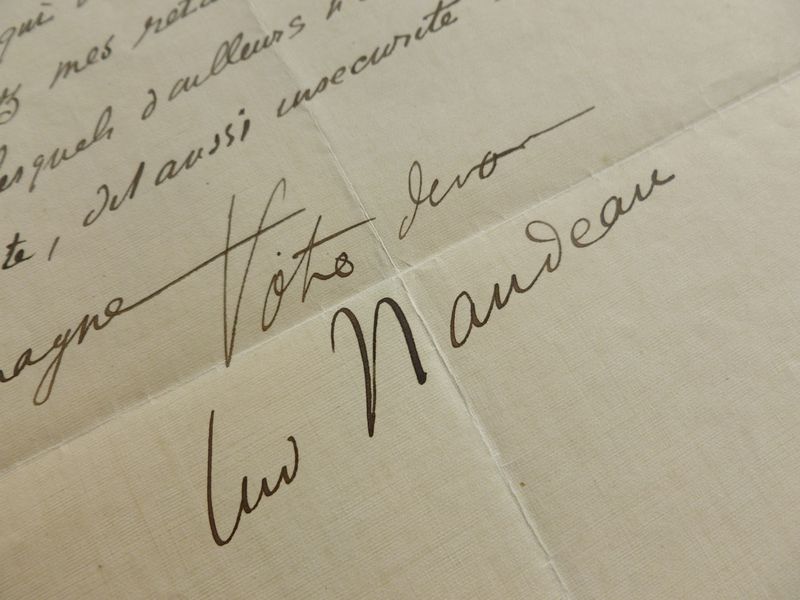 qui
mes reta
lesquels d'ailleurs n'
te, est aussi insécurité
magne Votre dévo
Naudeau